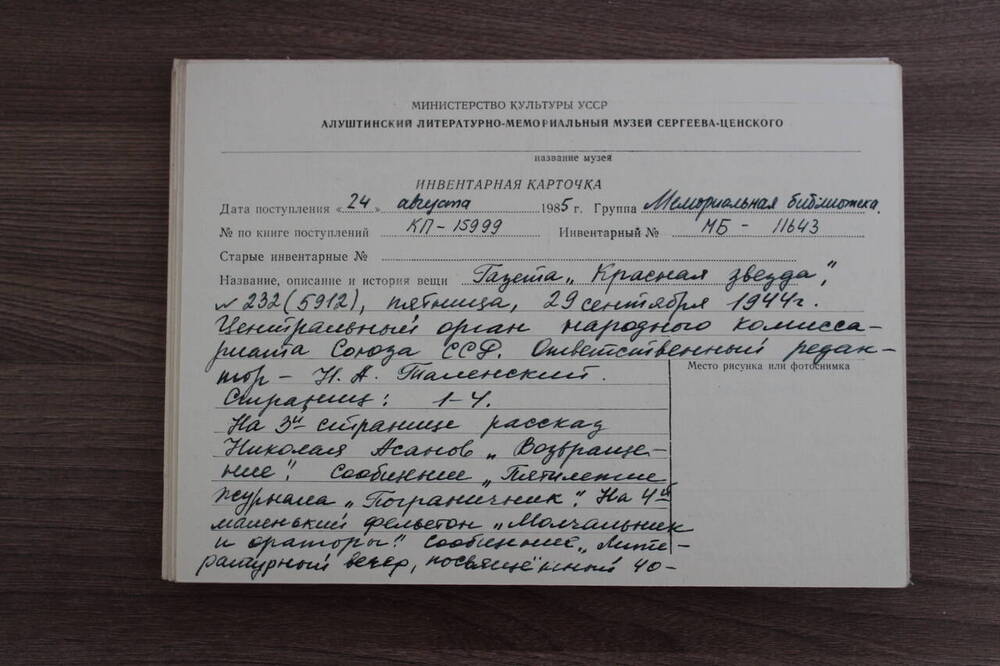 МИНИСТЕРСТВО КУЛЬТУРЫ УССР
АЛУШТИНСКИЙ ЛИТЕРАТУРНО-МЕМОРИАЛЬНЫЙ МУЗЕЙ СЕРГЕЕВА-ЦЕНСКОГО
название музея
ИНВЕНТАРНАЯ КАРТОЧКА
Дата поступления «24» августа 1985 г. Группа Мемориальная библиотека.
№ по книге поступлений КП-15999 Инвентарный № МБ - 11643
Старые инвентарные №
Название, описание и история вещи Газета „Красная звезда",
№ 232 (5912), пятница, 29 сентября 1944г.
Центральный орган народного комисса-
риата Союза ССР. Ответственный редак-
тор - Н. А. Таленский.
Место рисунка или фотоснимка
Страниц: 1-4.
На 3й странице рассказ
Николая Асанов „Возвраще-
ние". Сообщение „Пятилетие
журнала „Пограничник". На 4й
маленький фельетон „Молчальник
и ораторы". Сообщение „Лите-
ратурный вечер, посвящённый 40-